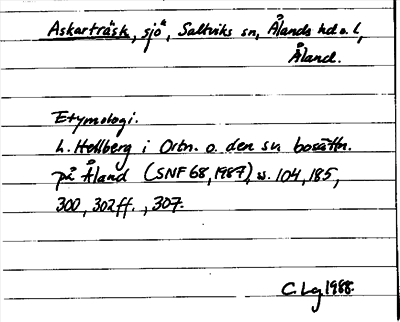 Askarträsk, sjö, Saltviks sn, Ålands hd o. l,
Åland.
Etymologi.
L. Hellberg i Ortn. o. den sv. bosättn.
på Åland (SNF 68, 1987), s. 104, 185,
300, 302ff., 307.
C. Lg 1988.